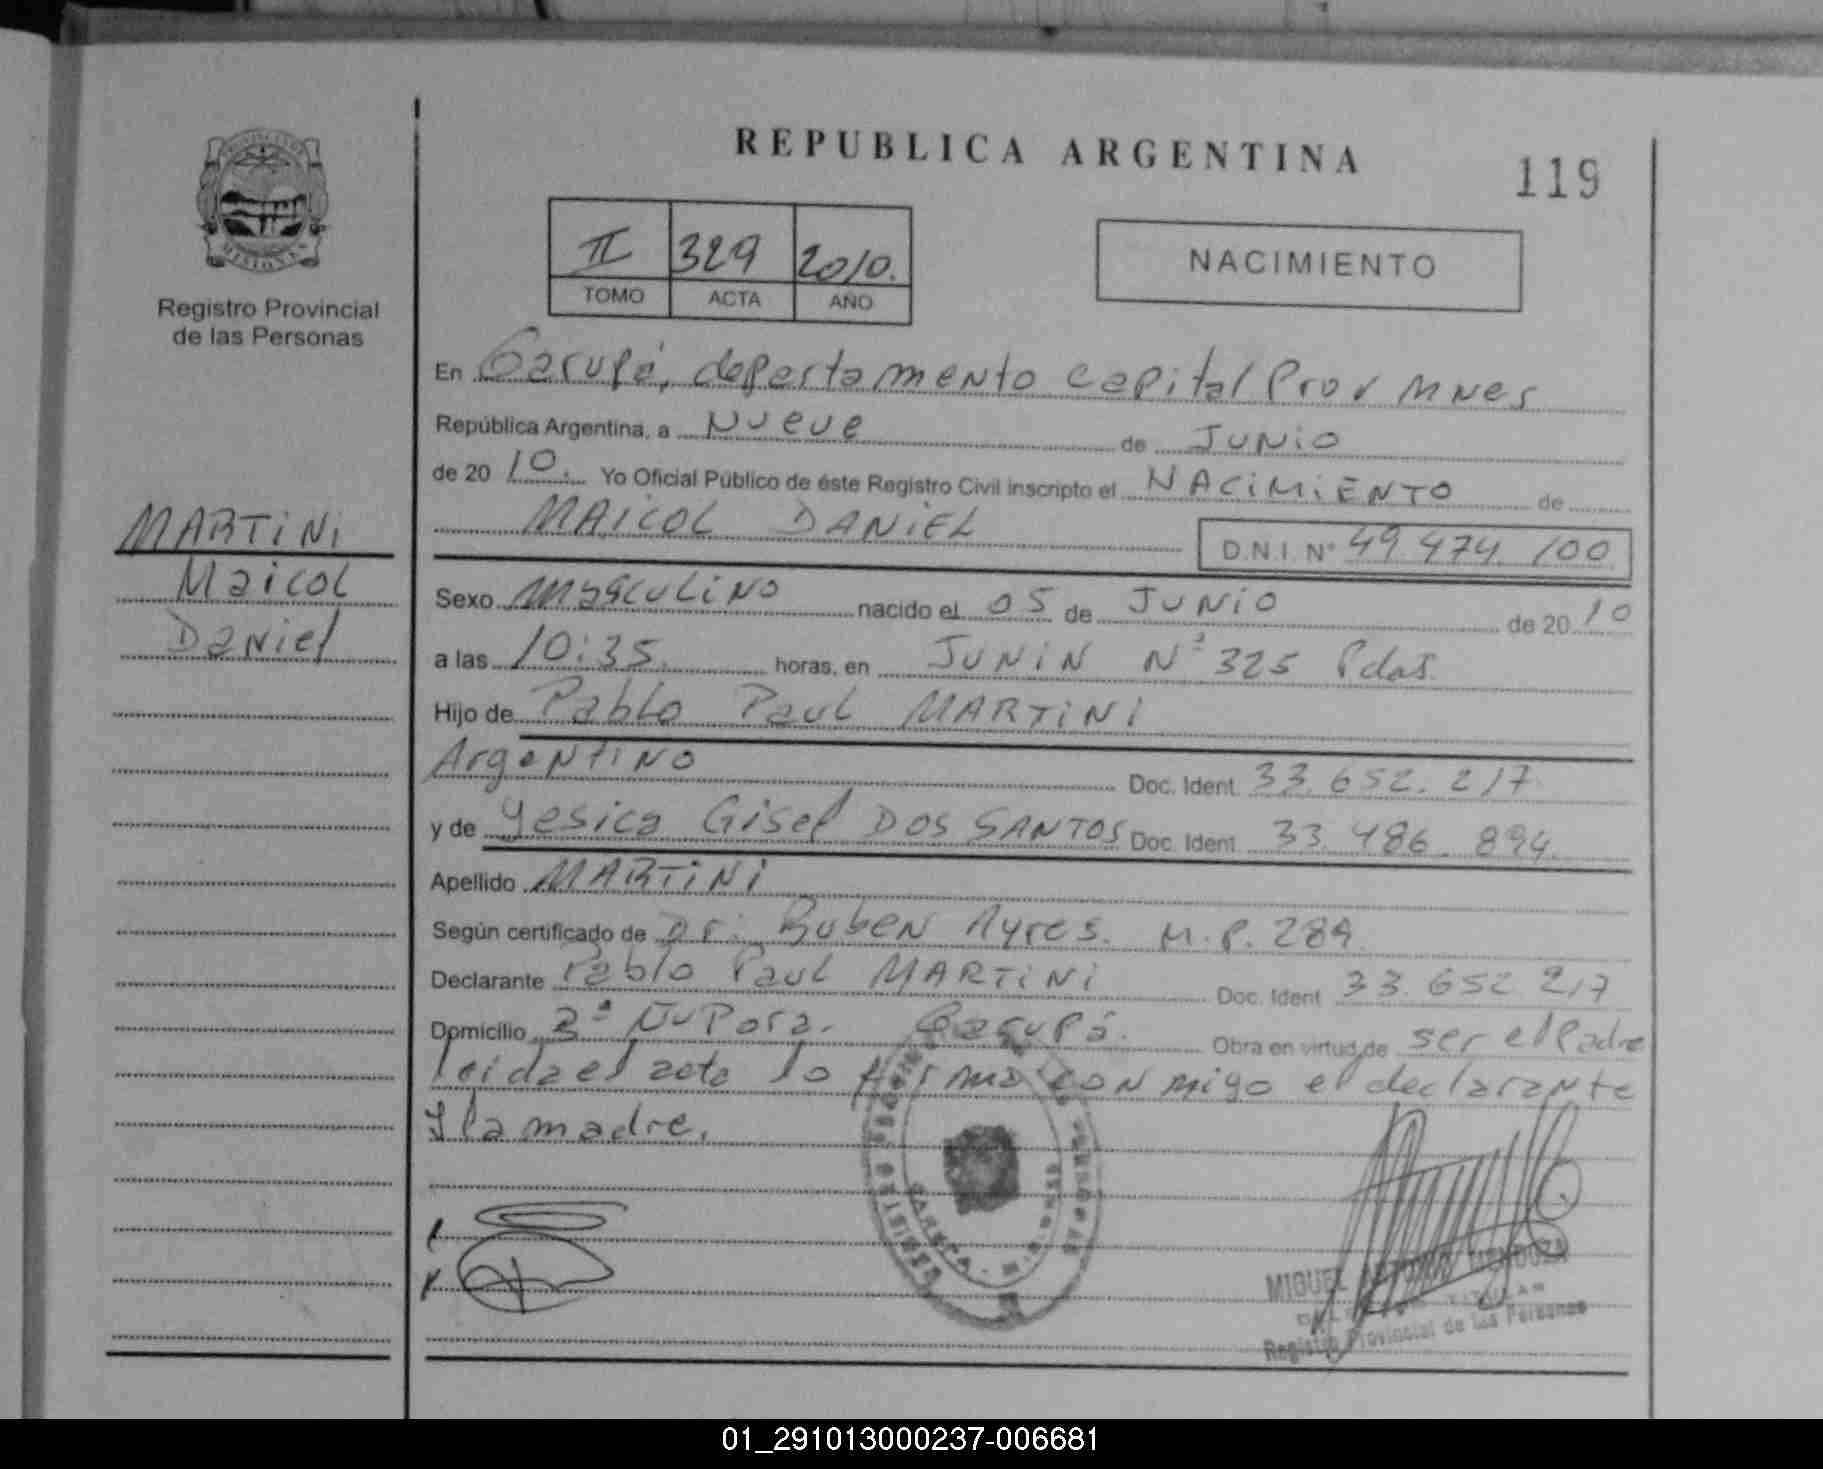 REPUBLICA ARGENTINA
119
PROVINCIA DE
MISIONES
Registro Provincial
de las Personas
II 329 2010.
TOMO ACTA AÑO
NACIMIENTO
En Garupá, departamento capital Prov Mnes
República Argentina, a Nueve de JUNiO
de 20 10. Yo Oficial Público de éste Registro Civil inscripto el NACiMiENTO de
MAiCOL DANiEL D.N.I. N° 49.474.100
MARTiNi
Maicol
Daniel
Sexo MasculiNo nacido el 05 de JUNiO de 20 10
a las 10:35. horas, en JUNiN N° 325 Pdas.
Hijo de Pablo Paul MARTiNi
ArgeNtiNo Doc. Ident. 33.652.217
y de Yesica Gisel DOS SANTOS Doc. Ident. 33.486.894.
Apellido MARTiNi
Según certificado de Dr. Ruben Ayres. M.P. 289
Declarante Pablo Paul MARTiNi Doc. Ident. 33.652.217
Domicilio Garupá. Obra en virtud de ser el Padre
leida el acta lo firma con migo el declarante
y la madre.
MIGUEL ANTONIO MENDOZA
TITULAR
Registro Provincial de las Personas
01_291013000237-006681